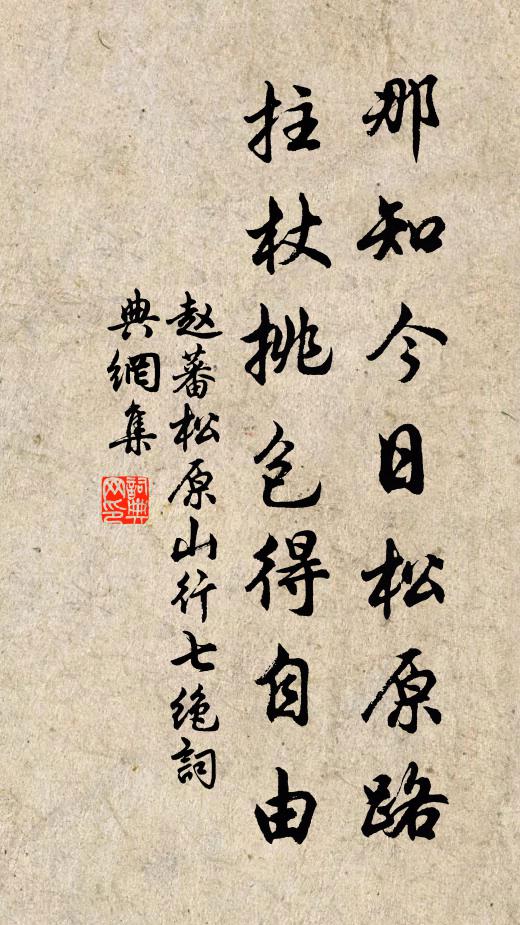 那知今日松原路
拄杖挑包得自由
赵蕃松原山行七绝詞
典網集
詞典
网印